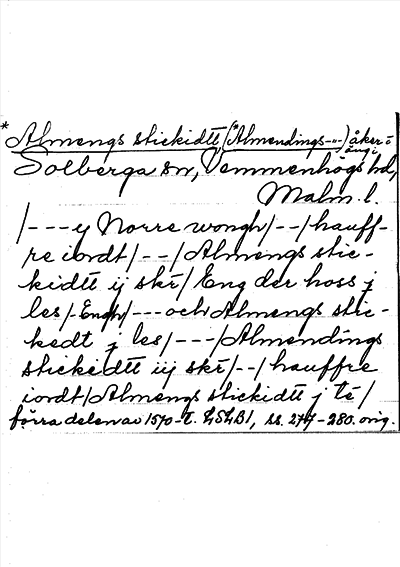 * Almengs stickidtt, (*Almendings---) åker=o äng i
Solberga sn, Vemmenhögs hd,
Malm. l.
/---y Norre wongh/--/hauff-
re iordt/--/Almengs stic-
kidtt ij skr/Eng der hoss j
les/-Engh/---och Almengs stic-
kedt j les/---/Almendings
stickedtt iij skr/--/hauffre
iordt/Almengs stickidtt j té/
förra delen av 1570-t. LSLB1, ss. 277-280. orig.